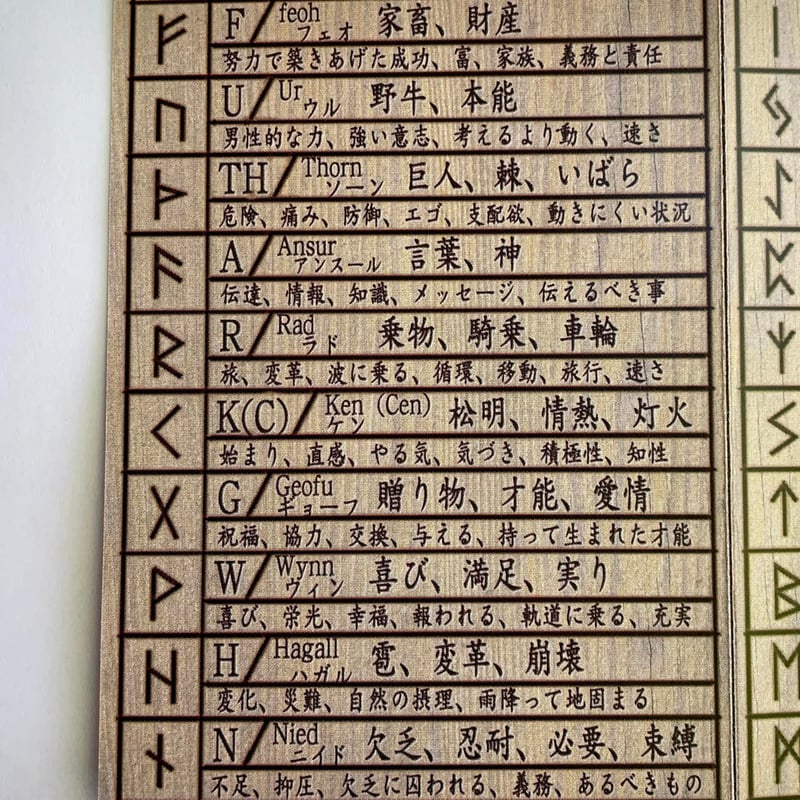 ᚠ F/feoh フェオ 家畜、財産
努力で築きあげた成功、富、家族、義務と責任
ᚢ U/Ur ウル 野牛、本能
男性的な力、強い意志、考えるより動く、速さ
ᚦ TH/Thorn ソーン 巨人、棘、いばら
危険、痛み、防御、エゴ、支配欲、動きにくい状況
ᚨ A/Ansur アンスール 言葉、神
伝達、情報、知識、メッセージ、伝えるべき事
ᚱ R/Rad ラド 乗物、騎乗、車輪
旅、変革、波に乗る、循環、移動、旅行、速さ
ᚲ K(C)/Ken (Cen) ケン 松明、情熱、灯火
始まり、直感、やる気、気づき、積極性、知性
ᚷ G/Geofu ギョーフ 贈り物、才能、愛情
祝福、協力、交換、与える、持って生まれた才能
ᚹ W/Wynn ウィン 喜び、満足、実り
喜び、栄光、幸福、報われる、軌道に乗る、充実
ᚺ H/Hagall ハガル 雹、変革、崩壊
変化、災難、自然の摂理、雨降って地固まる
ᚾ N/Nied ニイド 欠乏、忍耐、必要、束縛
不足、抑圧、欠乏に囚われる、義務、あるべきもの
ᛁ
ᛃ
ᛇ
ᛈ
ᛉ
ᛊ
ᛏ
ᛒ
ᛖ
ᛗ